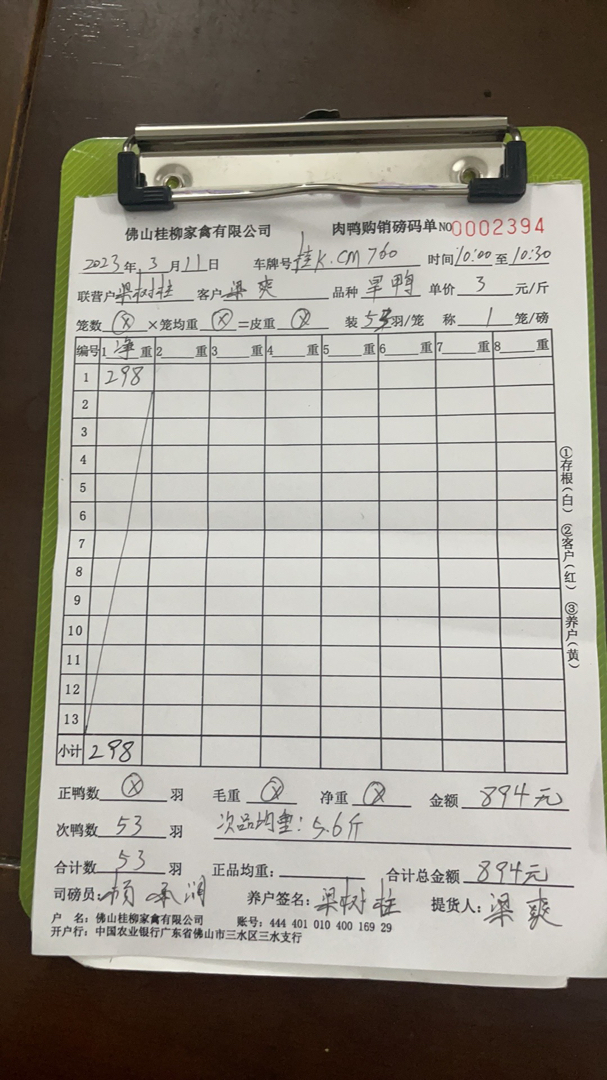 佛山桂柳家禽有限公司 肉鸭购销磅码单 NO 0002394
2023年 3月11日 车牌号 桂K.CM760 时间10:00至10:30
联营户 梁树柱 客户 梁爽 品种 旱鸭 单价 3 元/斤
笼数 ⓧ ×笼均重 ⓧ =皮重 ⓧ 装 53羽/笼 称 1 笼/磅
编号 1 净 重 2 重 3 重 4 重 5 重 6 重 7 重 8 重
1 298
2
3
4
5
6
7
8
9
10
11
12
13
小计 298
①存根(白) ②客户(红) ③养户(黄)
正鸭数 ⓧ 羽 毛重 ⓧ 净重 ⓧ 金额 894元
次鸭数 53 羽 次品均重: 5.6斤
合计数 53 羽 正品均重: 合计总金额 894元
司磅员: 杨 润 养户签名: 梁树柱 提货人: 梁爽
户 名: 佛山桂柳家禽有限公司 账号: 444 401 010 400 169 29
开户行: 中国农业银行广东省佛山市三水区三水支行